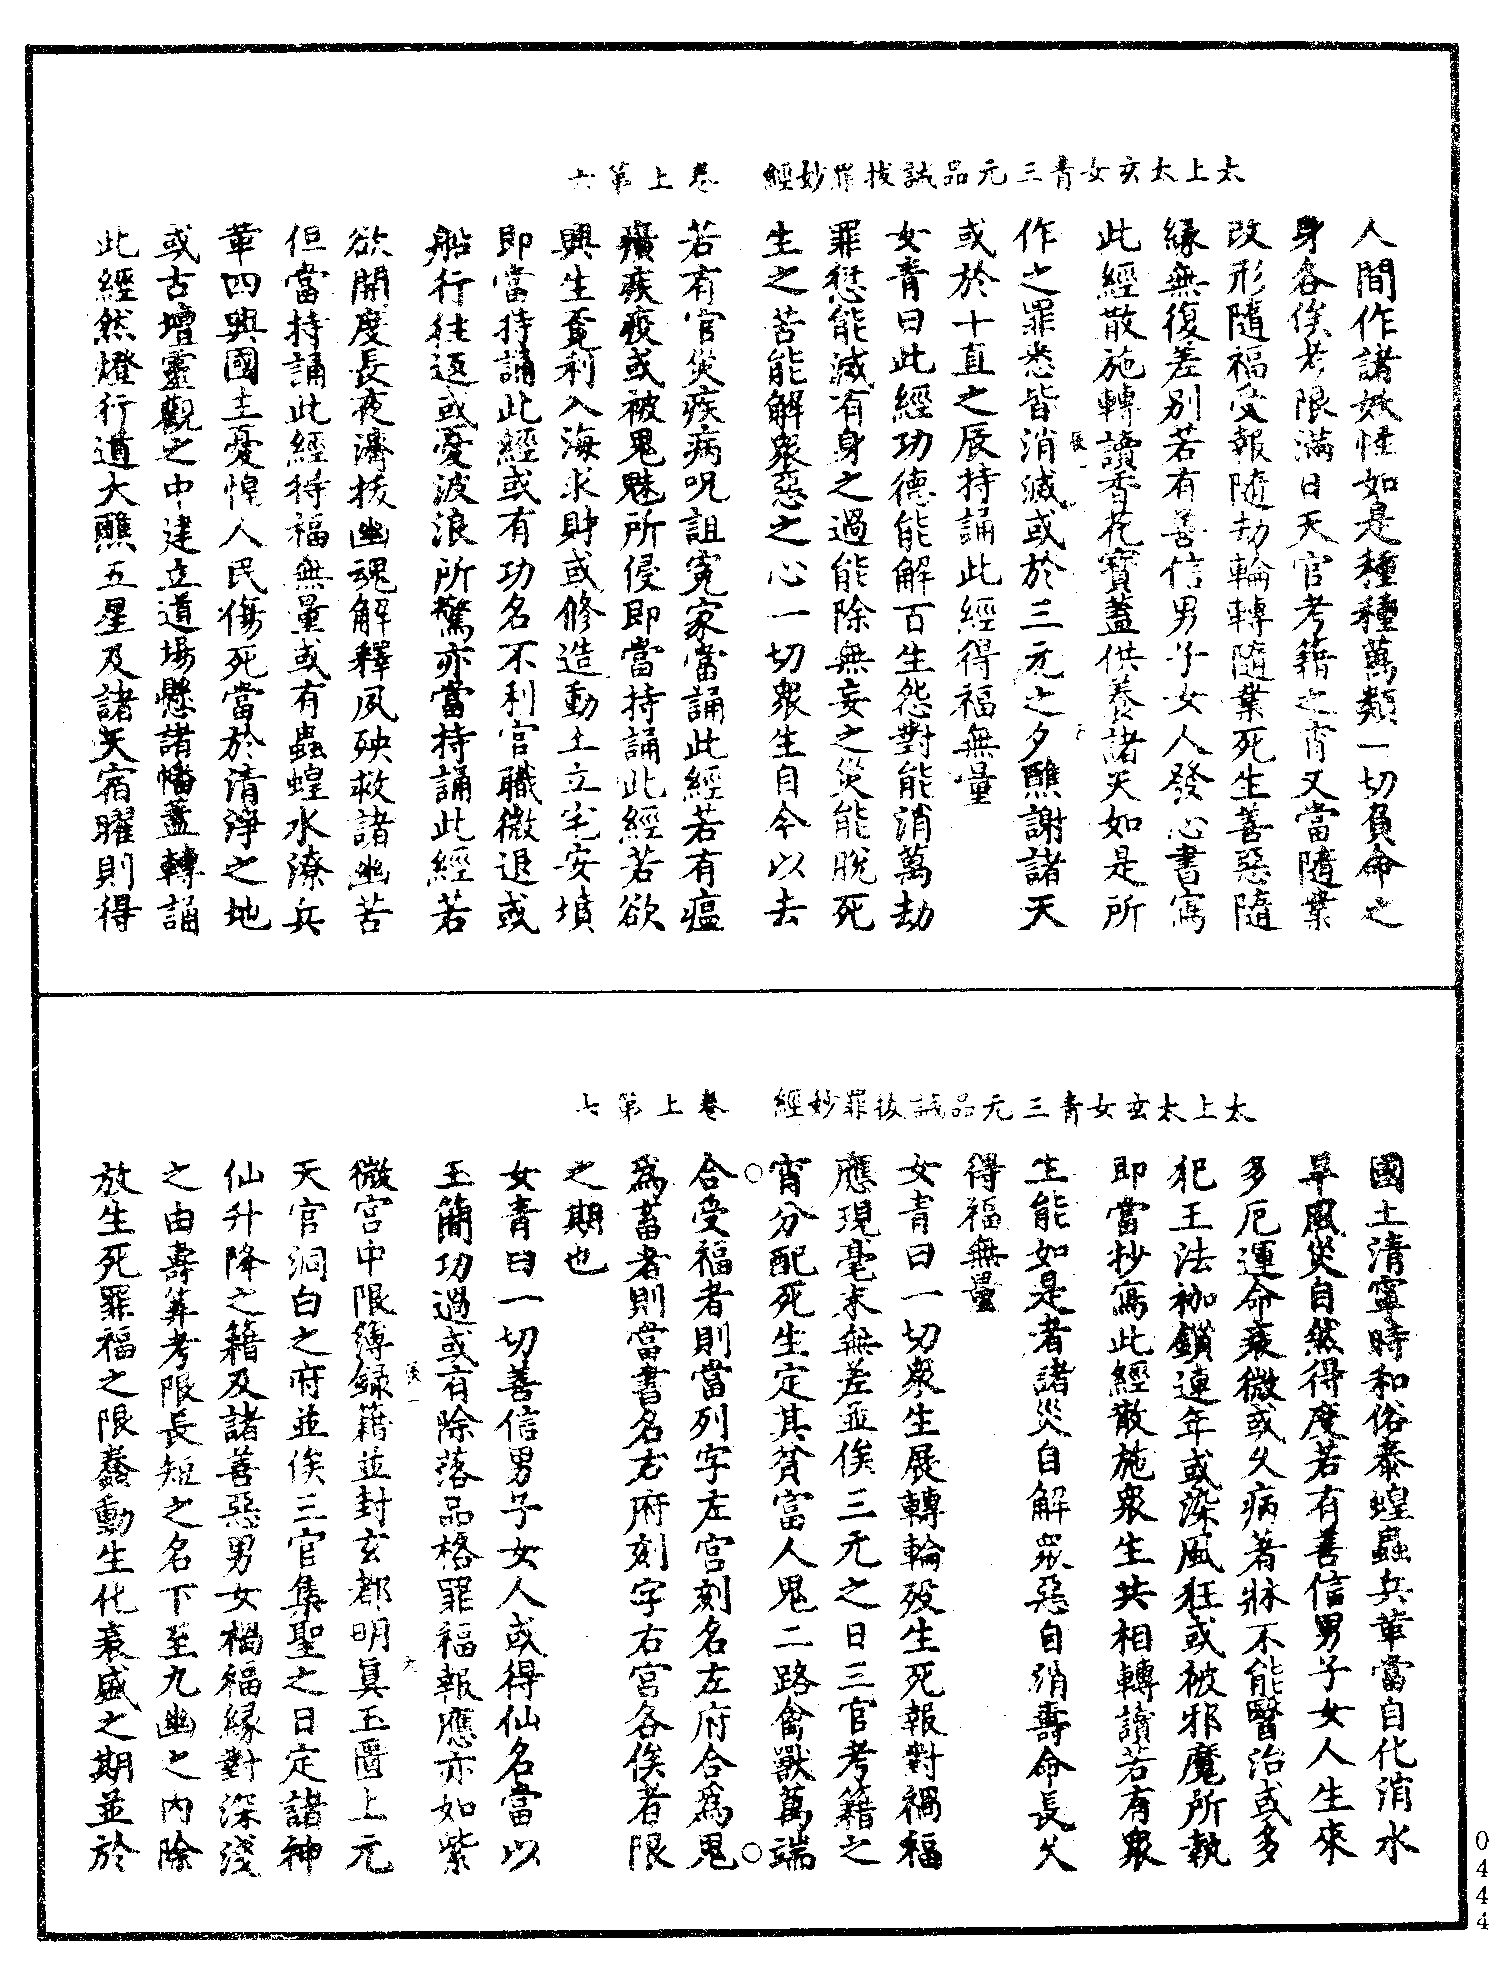 太上太玄女青三元品誡拔罪妙經　卷上第六
人間作諸妖怪如是種種萬類一切負命之
身各俟考限滿日天官考籍之宵又當隨業
改形隨福受報隨劫輪轉隨業死生善惡隨
緣無復差別若有善信男子女人發心書寫
此經散施轉讀香花寶蓋供養諸天如是所
作之罪悉皆消滅或於三元之夕醮謝諸天
或於十直之辰持誦此經得福無量
女青曰此經功德能解百生怨對能消萬劫
罪愆能滅有身之過能除無妄之災能脫死
生之苦能解衆惡之心一切衆生自今以去
若有官災疾病呪詛冤家當誦此經若有瘟
癀疾疫或被鬼魅所侵即當持誦此經若欲
興生覔利入海求財或修造動土立宅安墳
即當持誦此經或有功名不利官職微退或
船行往返或憂波浪所驚亦當持誦此經若
欲開度長夜濟拔幽魂解釋夙殃救諸幽苦
但當持誦此經將福無量或有蟲蝗水潦兵
革四興國主憂惶人民傷死當於清淨之地
或古壇靈觀之中建立道場懸諸幡蓋轉誦
此經然燈行道大醮五星及諸天宿曜則得
太上太玄女青三元品誡拔罪妙經　卷上第七
國土清寧時和俗泰蝗蟲兵革當自化消水
旱風災自然得度若有善信男子女人生來
多厄運命衰微或久病著牀不能醫治或多
犯王法枷鎖連年或染風狂或被邪魔所執
即當抄寫此經散施衆生共相轉讀若有衆
生能如是者諸災自解衆惡自消壽命長久
得福無量
女青曰一切衆生展轉輪殁生死報對禍福
應現毫末無差並俟三元之日三官考籍之
宵分配死生定其貧富人鬼二路禽獸萬端
合受福者則當列字左宮刻名左府合爲鬼
爲畜者則當書名右府刻字右宮各俟者限
之期也
女青曰一切善信男子女人或得仙名當以
玉簡功過或有除落品格罪福報應亦如紫
微宮中限簿録籍並封玄都明真玉匱上元
天官洞白之府並俟三官集聖之日定諸神
仙升降之籍及諸善惡男女禍福緣對深淺
之由壽筭考限長短之名下至九幽之內除
放生死罪福之限蠢動生化衰盛之期並於
0444